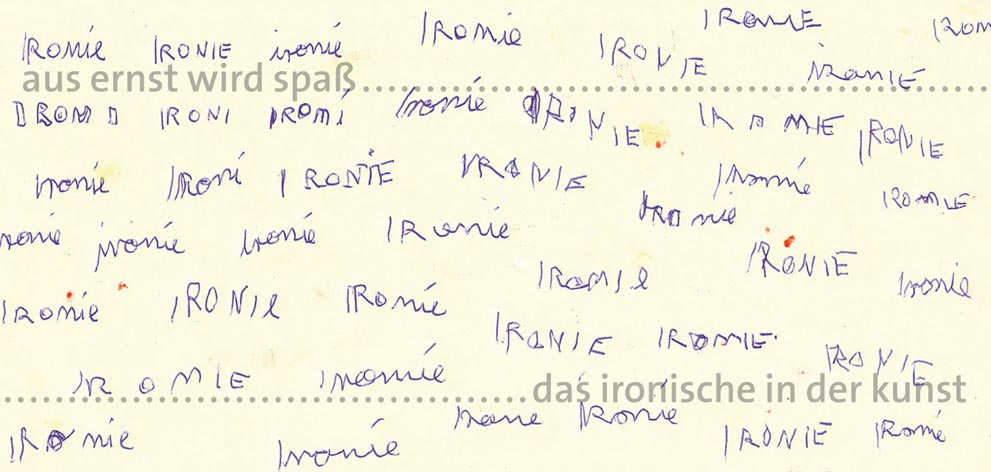 IRonie IRONIE ironié IRonie IRonIE IRON
IRONIE iranIE
aus ernst wird spaß
IROM IRONI IROMI Ironié IRONIE IROMIE IRONIE
Ironie IRonI IRONIE IRONIE Ironie IROMIE
ronie ironie Ironie IRonie Ironie
IRonIl IRONIE Ironie
IRonie IRONIl IRonie
IRONIE IROMIE IRONIE
IROMIE Ironié
das ironische in der kunst
Irane Ironie
IRonie Ironie IRONIE IRomé